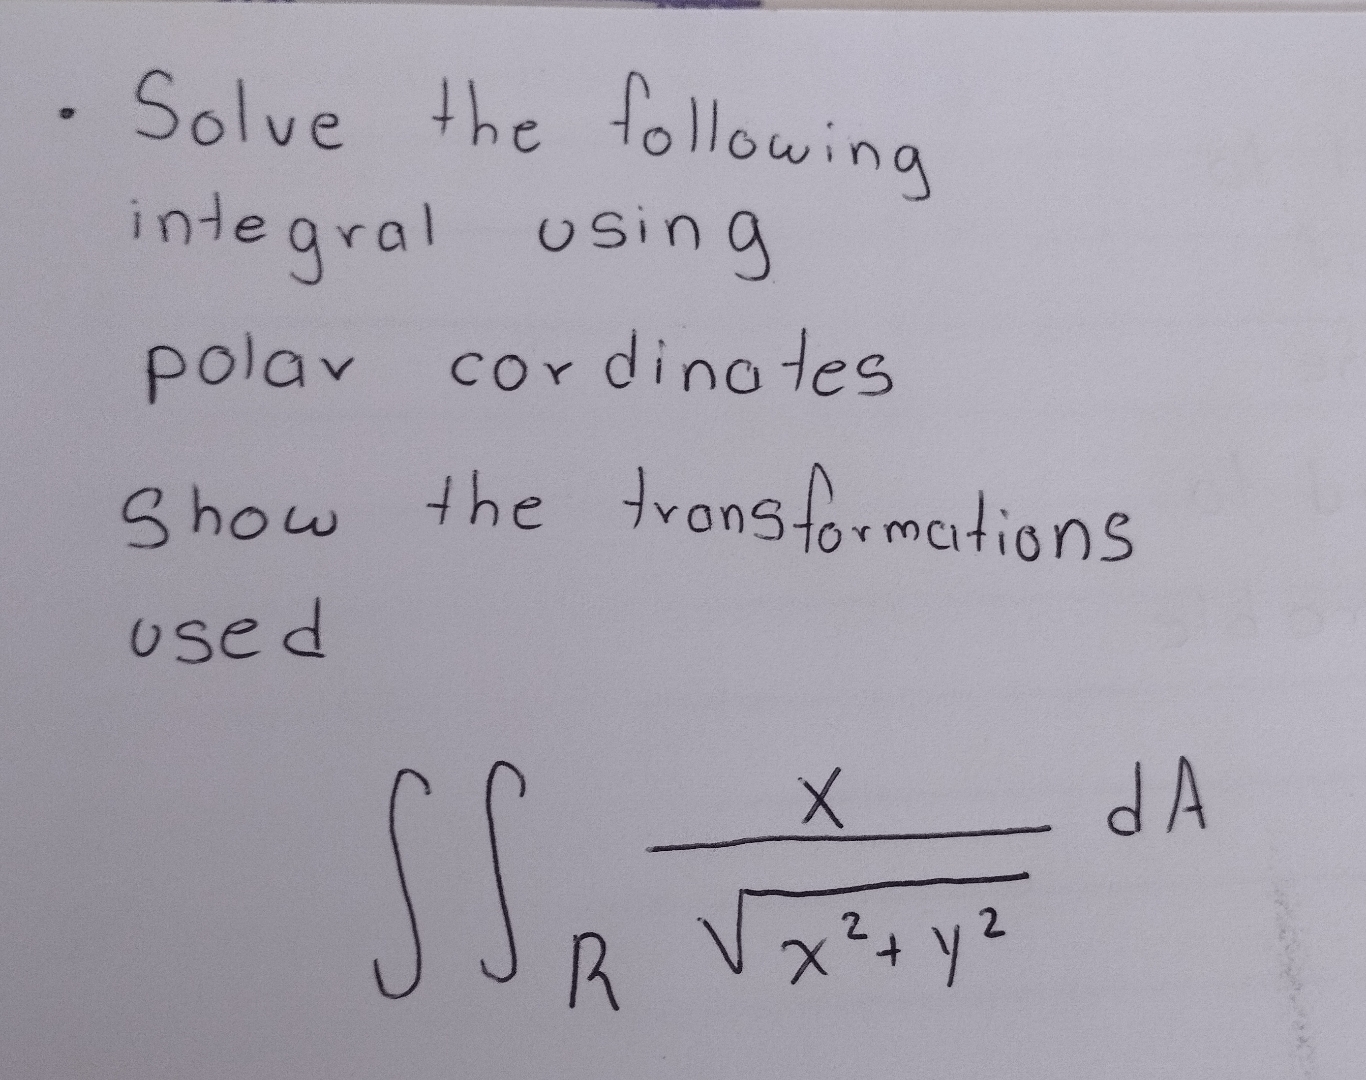 • Solve the following
integral using
polar cordinates
Show the transformations
used
∫∫_R x/√(x²+y²) dA